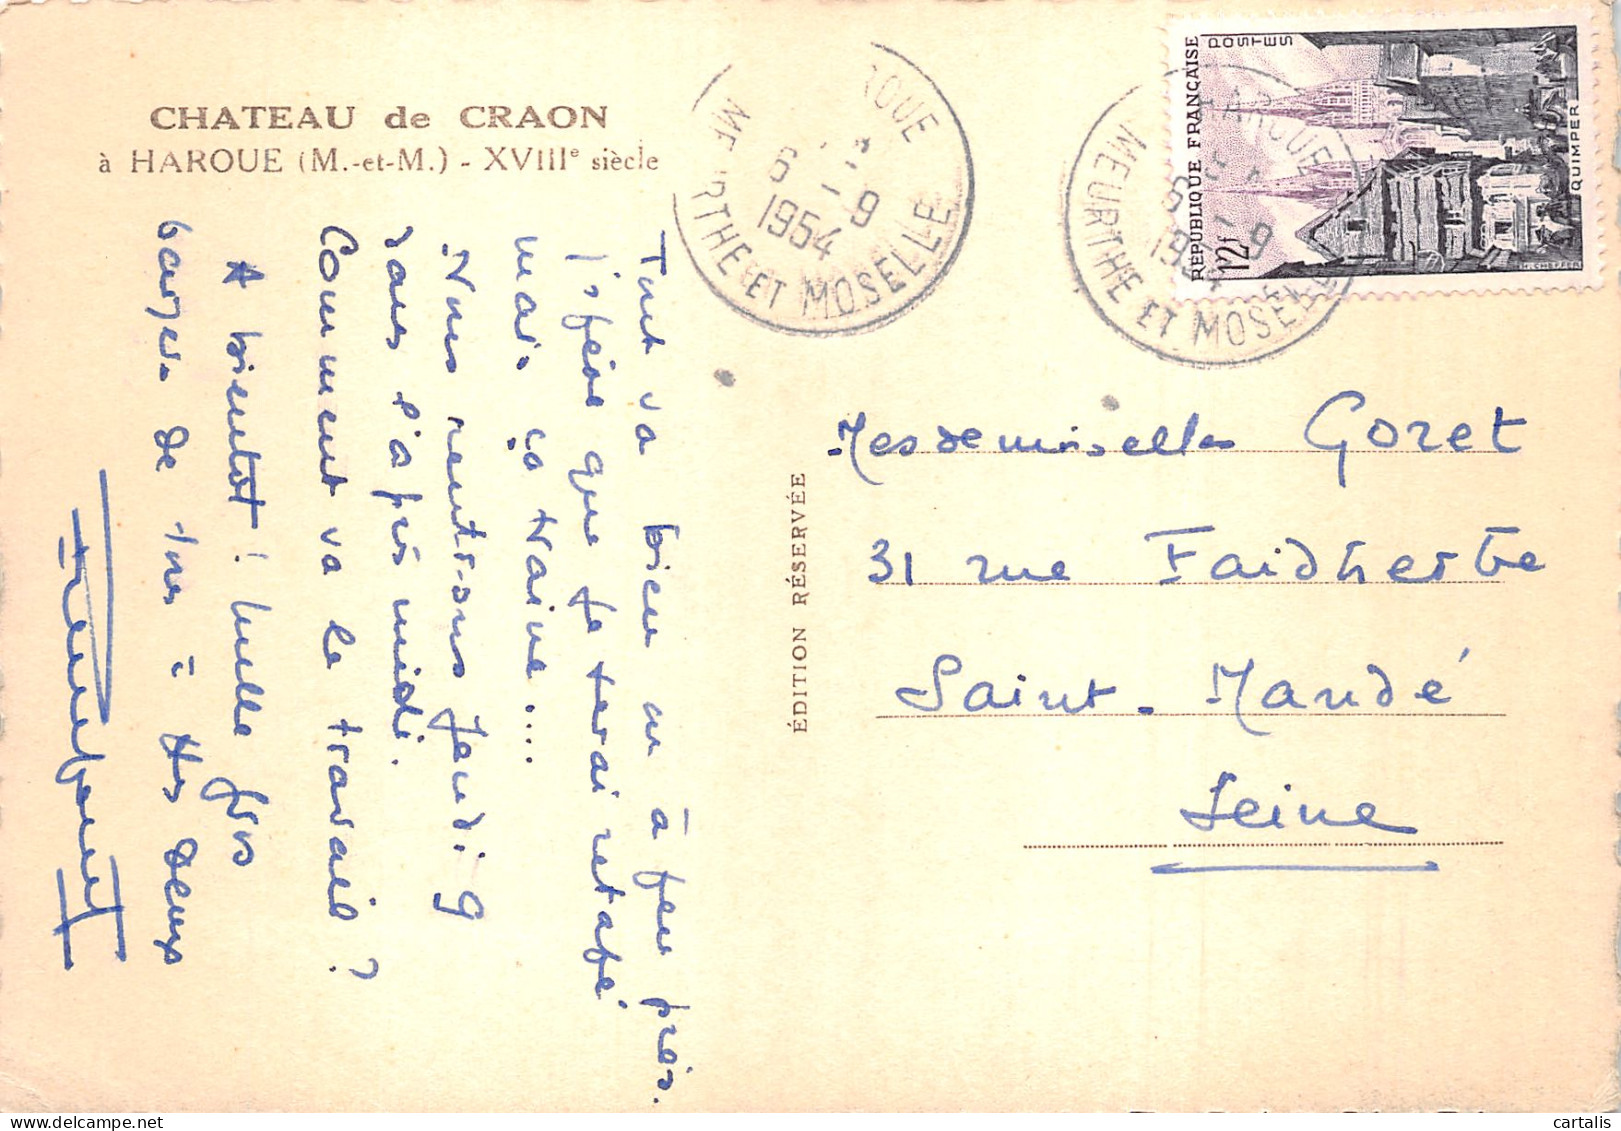 CHATEAU de CRAON
à HAROUE (M.-et-M.) - XVIIIe siècle
Tout va bien ou à peu près.
J'espère que je serai retapé
mais ça traine...
Nous rentrons jeudi 9
dans l'après midi.
Comment va le travail ?
A bientôt ! mille gros
baisers de nous à tes deux
ÉDITION RÉSERVÉE
HAROUE
6 -9
1954
MEURTHE ET MOSELLE
HAROUE
6 -9
1954
MEURTHE ET MOSELLE
REPUBLIQUE FRANÇAISE
POSTES
12f
QUIMPER
H. CHEFFER
Mesdemoiselles Goret
31 rue Faidherbe
Saint-Mandé
Seine
cartalis